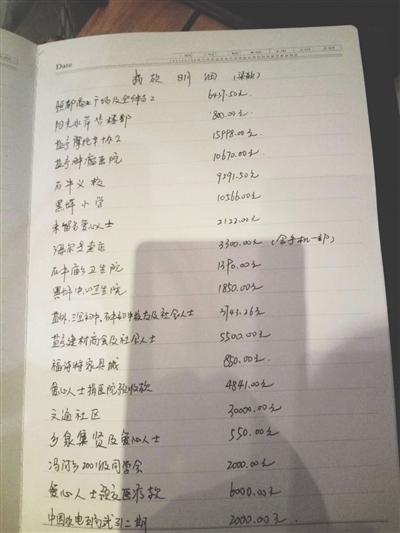 Date
捐款明细
6437.50元
阳光水岸售楼部 800.00元
盐亭摩托车协会 15998.00元
盐亭肿瘤医院 10670.00元
石牛义校 9291.50元
黑坪小学 10566.00元
未留名爱心人士 2122.00元
海尔专卖店 3300.00元 (含手机一部)
石牛庙乡卫生院 1390.00元
黑坪中心卫生院 1850.00元
及社会人士 3743.26元
盐亭建材商会及社会人士 5500.00元
福海特家具城 850.00元
爱心人士捐医院预收款 4841.00元
文通社区 30000.00元
乡泉集贤及爱心人士 550.00元
冯河乡2001级同学会 2000.00元
爱心人士预交医疗款 6000.00元
中国 二期 2000.00元